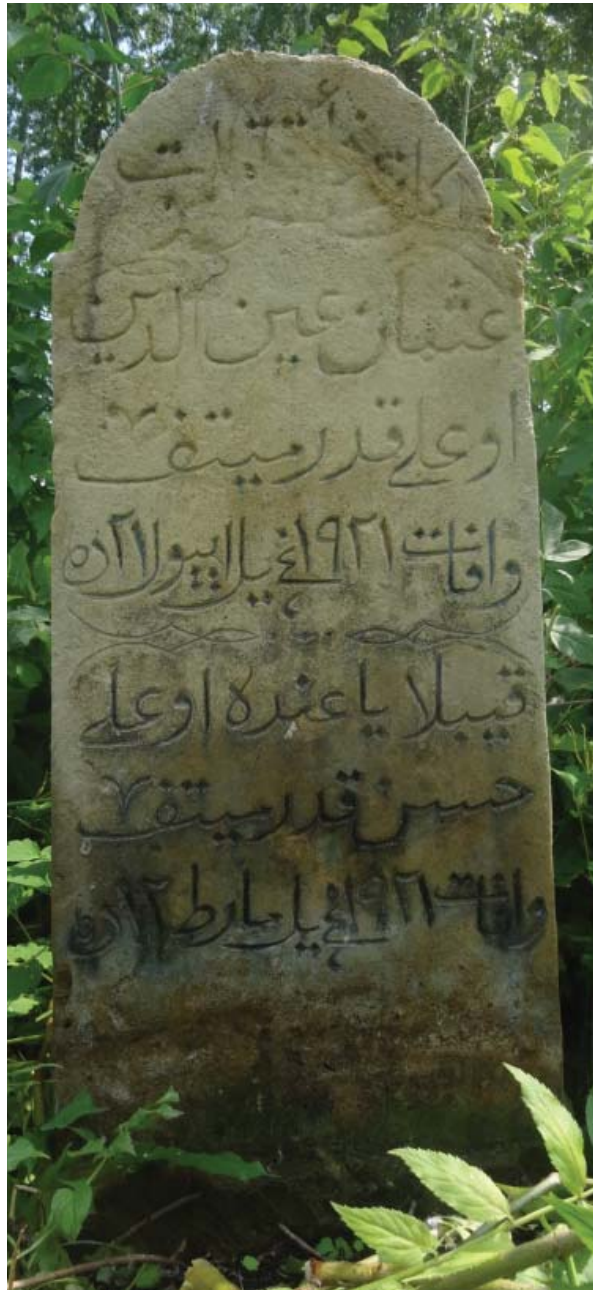 عثمان عين الدين
اوعلے قدرميتف
وافات ١٩٢١ نچے يل اييول ٢١ ده
قيبلا ياعنده اوعلے
حسن قدرميتف
وافات ١٩٢١ نچے يل مارط ١٢ ده